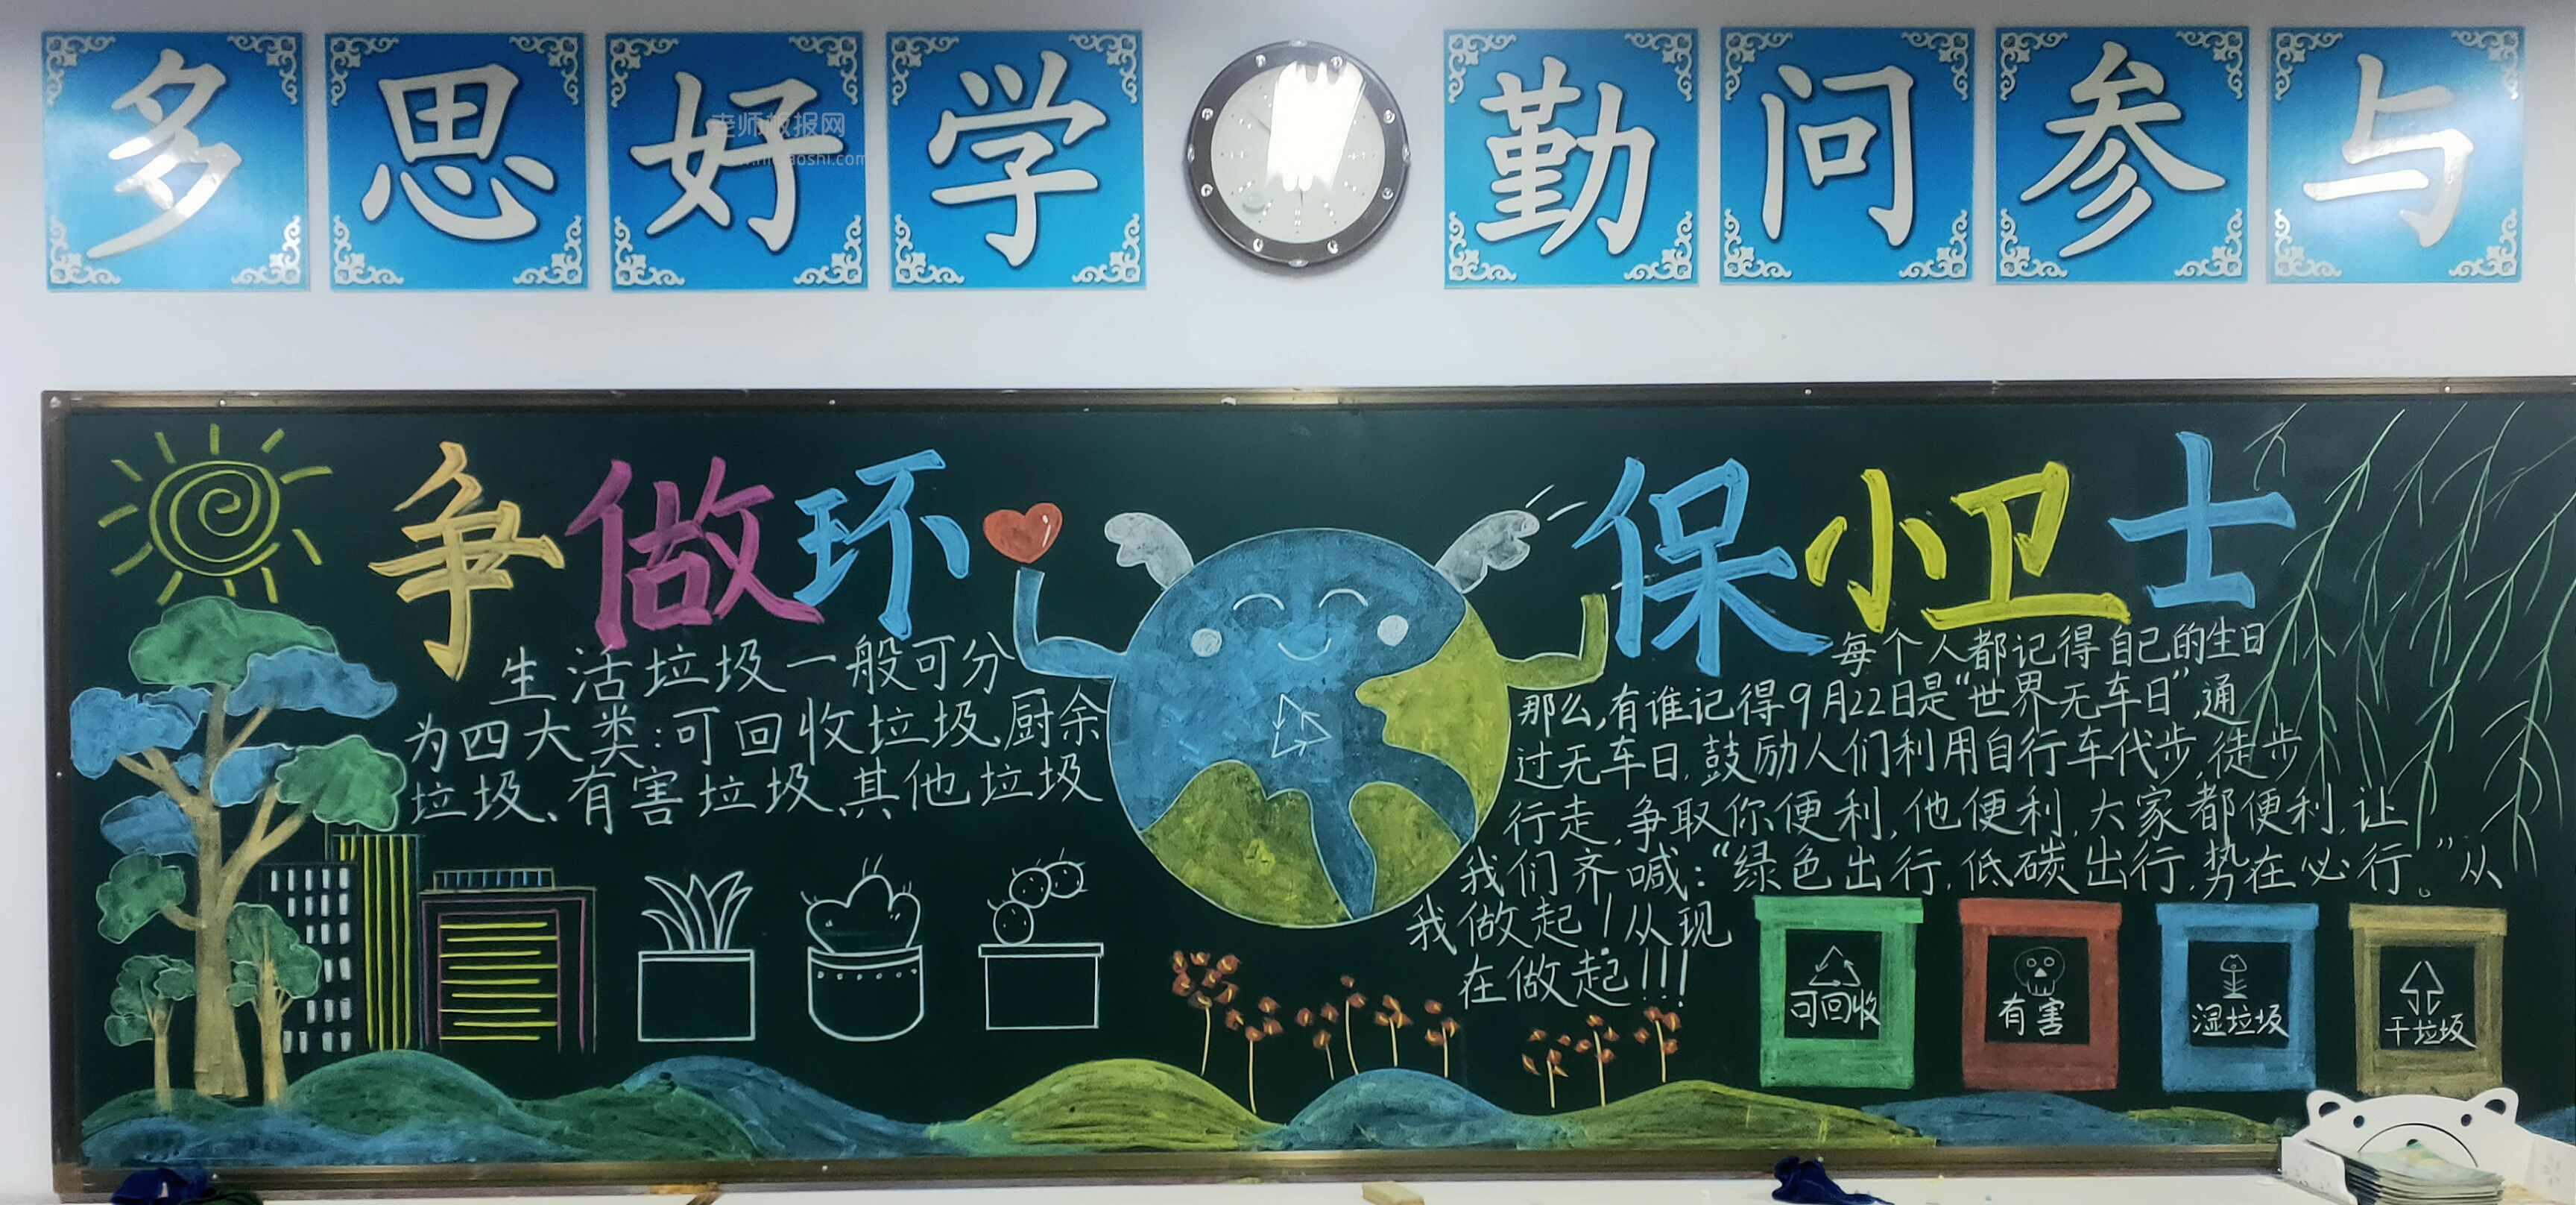 多思好学 勤问参与
老师板报网
争做环保小卫士
生活垃圾一般可分
为四大类:可回收垃圾、厨余
垃圾、有害垃圾、其他垃圾
每个人都记得自己的生日
那么,有谁记得9月22日是“世界无车日”,通
过无车日,鼓励人们利用自行车代步,徒步
行走,争取你便利,他便利,大家都便利,让
我们齐喊:“绿色出行,低碳出行,势在必行。”从
我做起!从现
在做起!!!
可回收
有害
湿垃圾
干垃圾